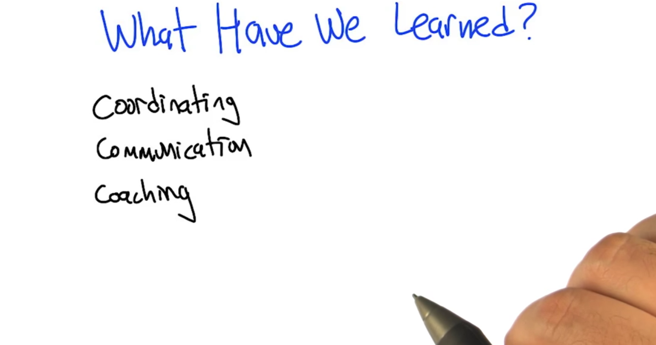 What Have We Learned?
Coordinating
Communication
Coaching